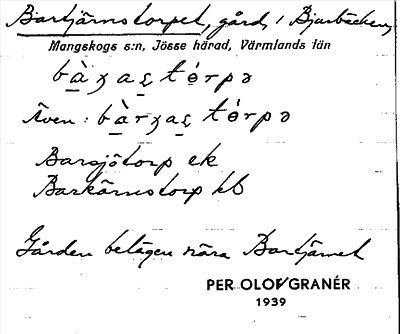 Bartjärnstorpet, gård, i Bjurbäcken,
Mangskogs s:n, Jösse härad, Värmlands län
Även:
Barsjötorp ek
Barkärnstorp kb
Gården belägen nära Bartjärnet
PER OLOV GRANÉR
1939